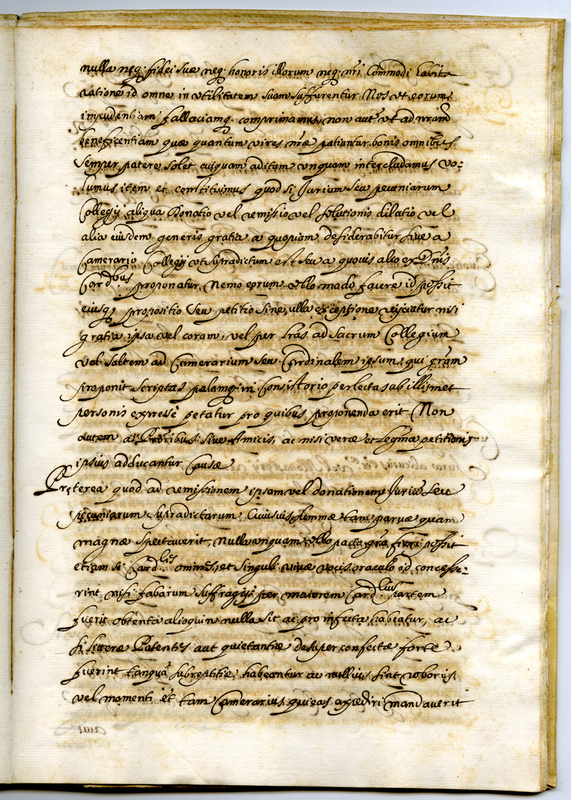 nulla neq; fidei suæ neq; honoris illorum neq; nri Commodi habita
ratione id omne in utilitatem suam suffurentur Nos ut eorum
impudentiam fallaciamq; comprimamus, non aut ut ad nram
beneficentiam quæ quantum vires nræ patiuntur bonis omnibus
semper patere solet cuiquam aditum unquam intercludamus vo-
lumus item et constituimus quod si Iurium seu pecuniarum
Collegij aliqua Donatio vel remissio vel solutionis dilatio vel
alia eiusdem generis gratia a quopiam desiderabitur sive a
Camerario Collegij ut supradictum est seu a quovis alio ex Dnis
Cardbus proponatur, Nemo eorum ullo modo facere id possit
eiusq; propositio seu petitio sine ulla exceptione reijciatur nisi
gratia ipsa vel coram, vel per lras ad Sacrum Collegium
vel saltem ad Camerarium seu Cardinalem ipsum, qui gram
proponit scriptas palamq; in Consistorio perlectas ab illismet
personis expresse petatur pro quibus proponenda erit Non
autem a sive Amicis, ac nisi veræ et legitimæ petitionis
ipsius adducantur causæ
Præterea quod ad remissionem ipsam vel donationem Iuris seu
pecuniarum supradictarum cuiusvis summæ tam parvæ quam
magnæ spectaverit, nulla unquam ullo pacto gra fieri possit
etiam si Cardles omnes, et singuli vivæ vocis oraculo id concesse-
rint, nisi fabarum suffragijs per maiorem Cardlium partem
fuerit obtenta alioquin nulla sit ac pro infecta habeatur, ac
si literæ Patentes aut quietantiæ desuper confectæ forte
fuerint tanquam subreptitiæ habeantur ac nullius sint roboris
vel momenti et tam Camerarius qui eas expediri mandaverit